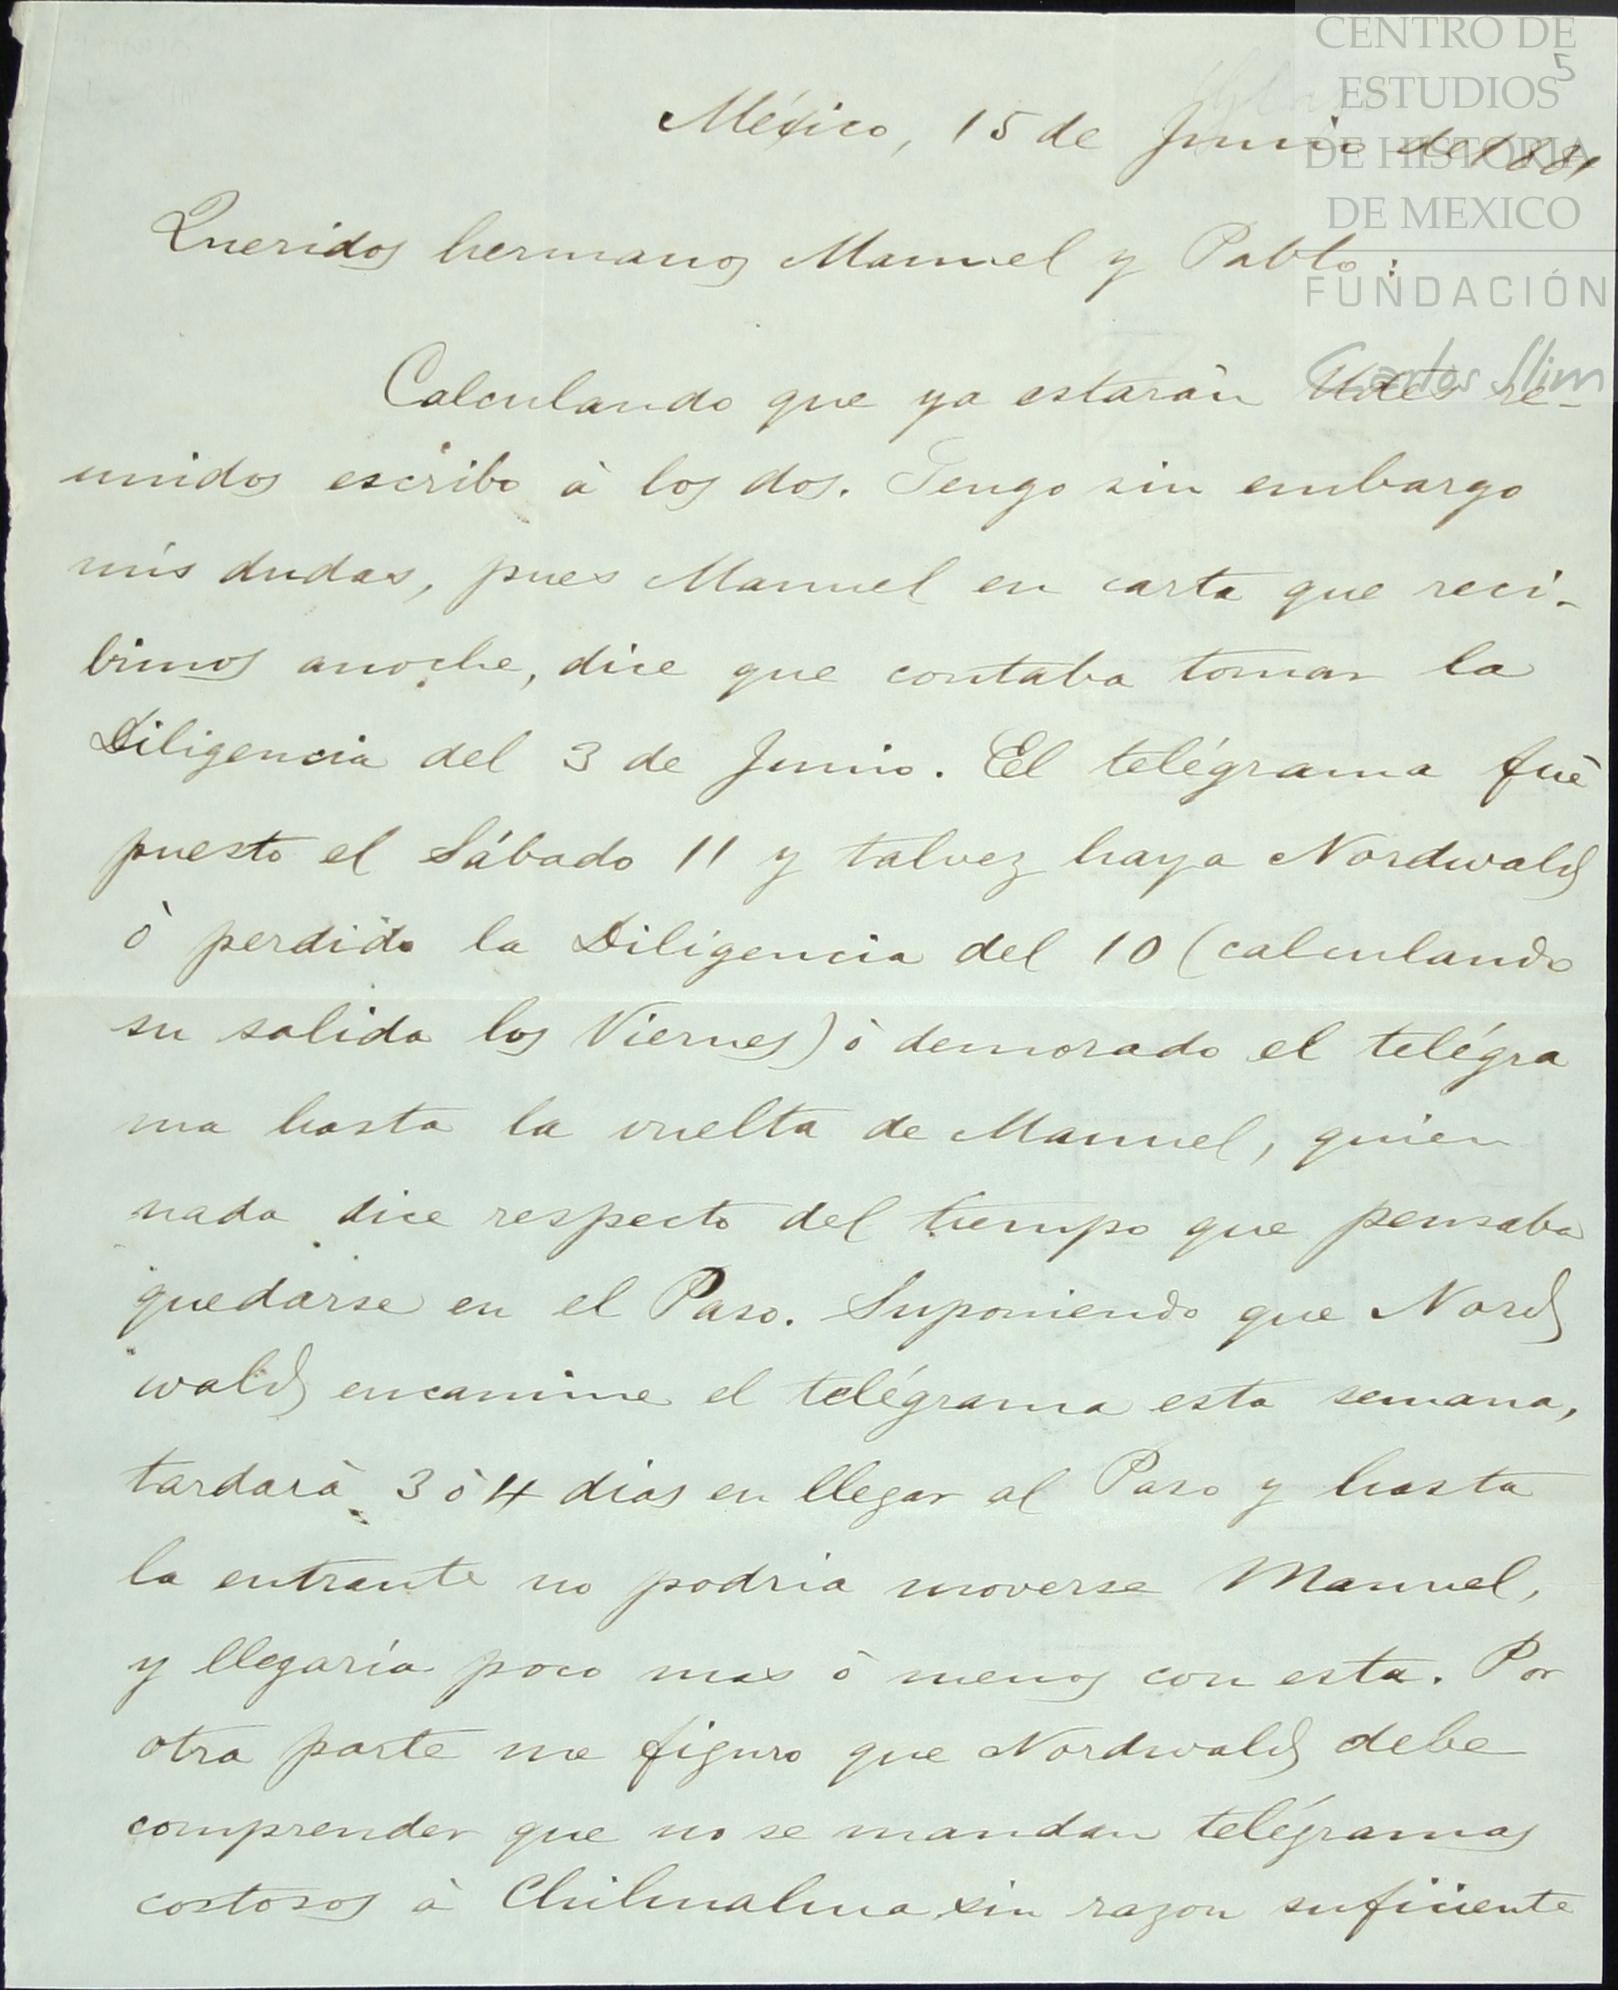 CENTRO DE
ESTUDIOS
DE HISTORIA
DE MEXICO
FUNDACIÓN
Carlos Slim
5
México, 15 de Junio de 1881
Queridos hermanos Manuel y Pablo:
Calculando que ya estarán Udes re-
unidos escribo à los dos. Tengo sin embargo
mis dudas, pues Manuel en carta que reci-
bimos anoche, dice que contaba tomar la
Diligencia del 3 de Junio. El telégrama fuè
puesto el Sábado 11 y talvez haya Nordwald
ò perdido la Diligencia del 10 (calculando
su salida los Viernes) ò demorado el telégra
ma hasta la vuelta de Manuel, quien
nada dice respecto del tiempo que pensaba
quedarse en el Paso. Suponiendo que Nord
wald encamine el telégrama esta semana,
tardarà 3 ò 4 dias en llegar al Paso y hasta
la entrante no podria moverse Manuel,
y llegaría poco mas ò menos con esta. Por
otra parte me figuro que Nordwald debe
comprender que no se mandan telégramas
costosos à Chihuahua sin razon suficiente